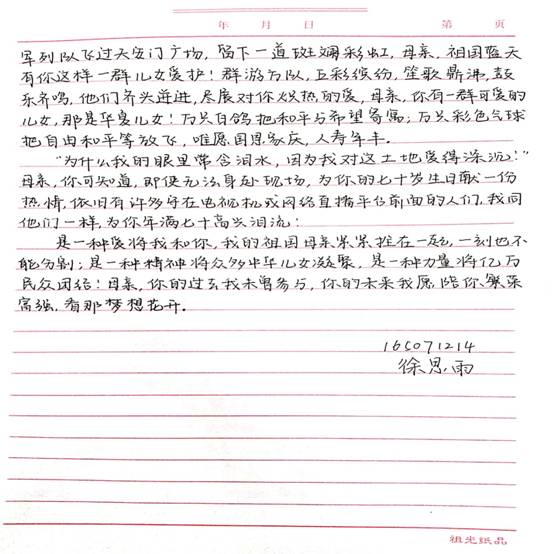 年 月 日 第 页
军列队飞过天安门广场，留下一道斑斓彩虹，母亲，祖国蓝天
有你这样一群儿女爱护！群游方队，五彩缤纷，笙歌鼎沸，鼓
乐齐鸣，他们齐头并进，尽展对你炽热的爱，母亲，你有一群可爱的
儿女，那是华夏儿女！万只白鸽把和平与希望寄寓；万只彩色气球
把自由和平等放飞，唯愿国恩家庆，人寿年丰。
"为什么我的眼里常含泪水，因为我对这土地爱得深沉！"
母亲，你可知道，即便无法身处现场，为你的七十岁生日献一份
热情，依旧有许多守在电视机或网络直播平台前面的人们，我同
他们一样，为你年满七十高兴泪流：
是一种爱将我和你，我的祖国母亲紧紧拴在一起，一刻也不
能分割；是一种精神将众多中华儿女凝聚，是一种力量将亿万
民众团结！母亲，你的过去我未曾参与，你的未来我愿陪你繁荣
富强，看那梦想花开。
165071214
徐思雨
祖光纸品